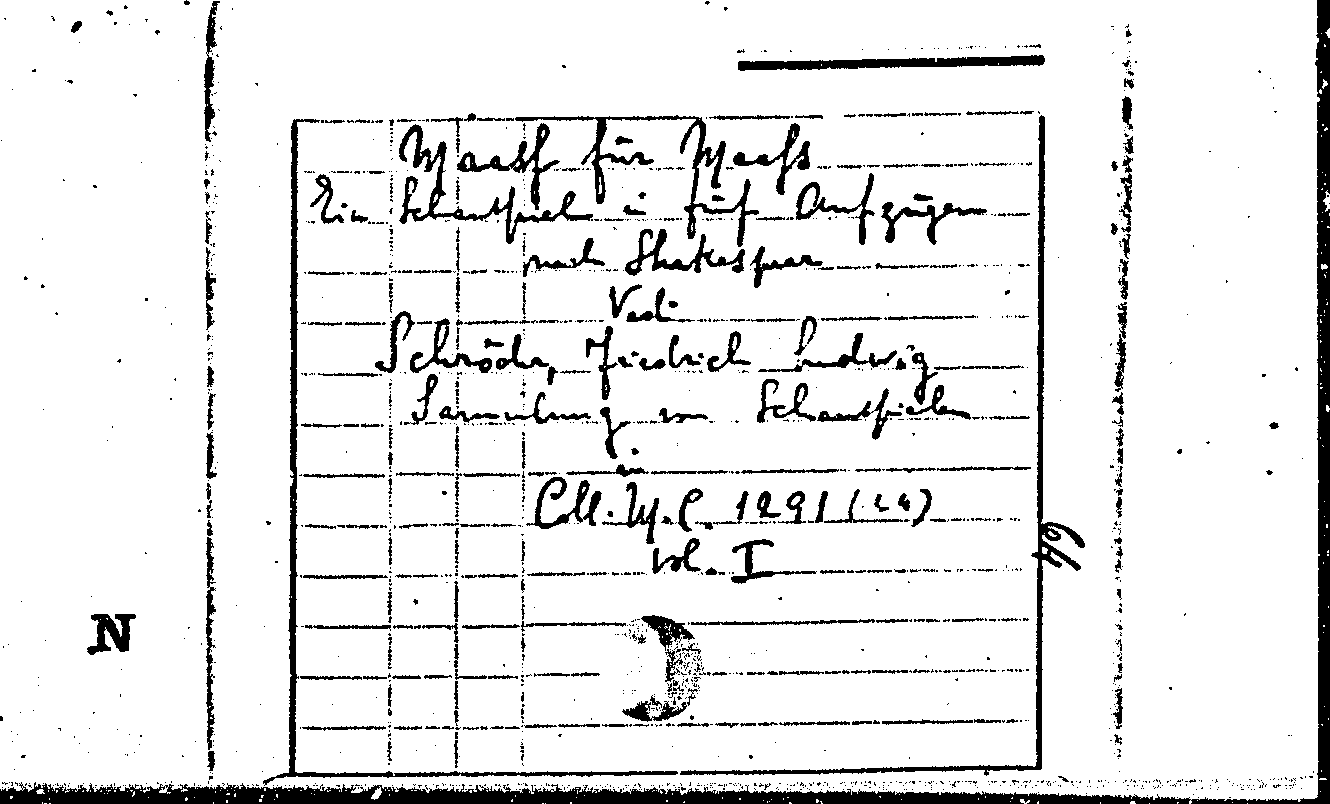 Maass für Maass
Ein Schauspiel in fünf Aufzügen
nach Shakespear
Vedi
Schröder, Friedrich Ludwig
Sammlung von Schauspielen
in
Coll. M. C. 1291 (24)
vol. I
N